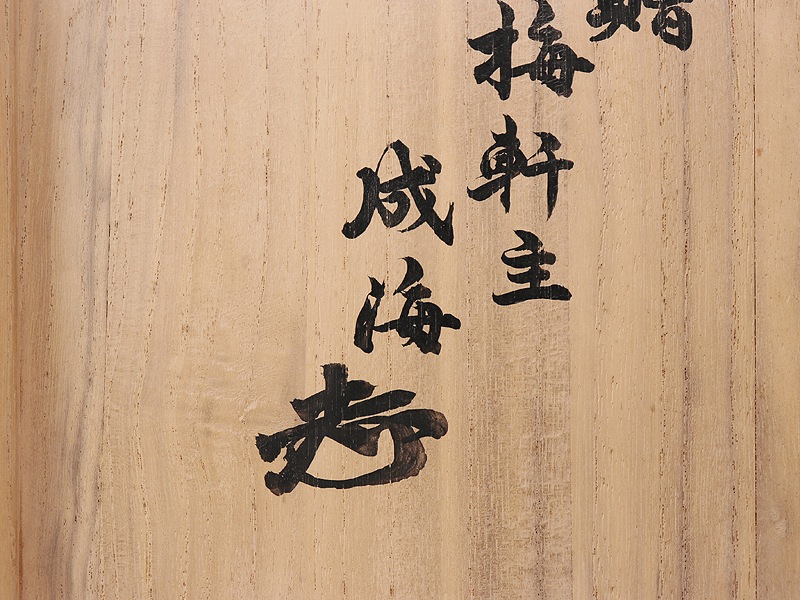 梅軒主
成海